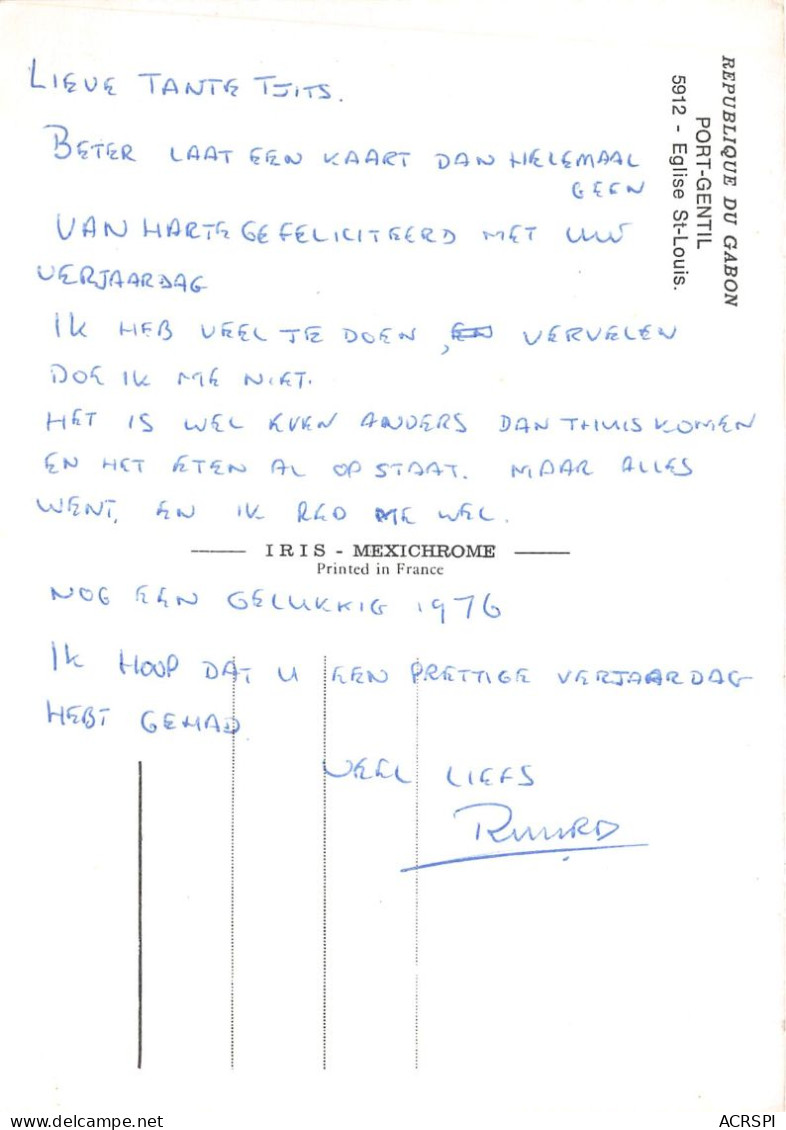 LIEVE TANTE TJITS.
BETER LAAT EEN KAART DAN HELEMAAL
GEEN
VAN HARTE GEFELICITEERD MET UW
VERJAARDAG
IK HEB VEEL TE DOEN, EN VERVELEN
DOE IK ME NIET.
HET IS WEL EVEN ANDERS DAN THUIS KOMEN
EN HET ETEN AL OP STAAT. MAAR ALLES
WENT, EN IK RED ME WEL.
IRIS - MEXICHROME
Printed in France
NOG EEN GELUKKIG 1976
IK HOOP DAT U EEN PRETTIGE VERJAARDAG
HEBT GEHAD
VEEL LIEFS
RUURD
REPUBLIQUE DU GABON
PORT-GENTIL
5912 - Eglise St-Louis.
ACRSPI